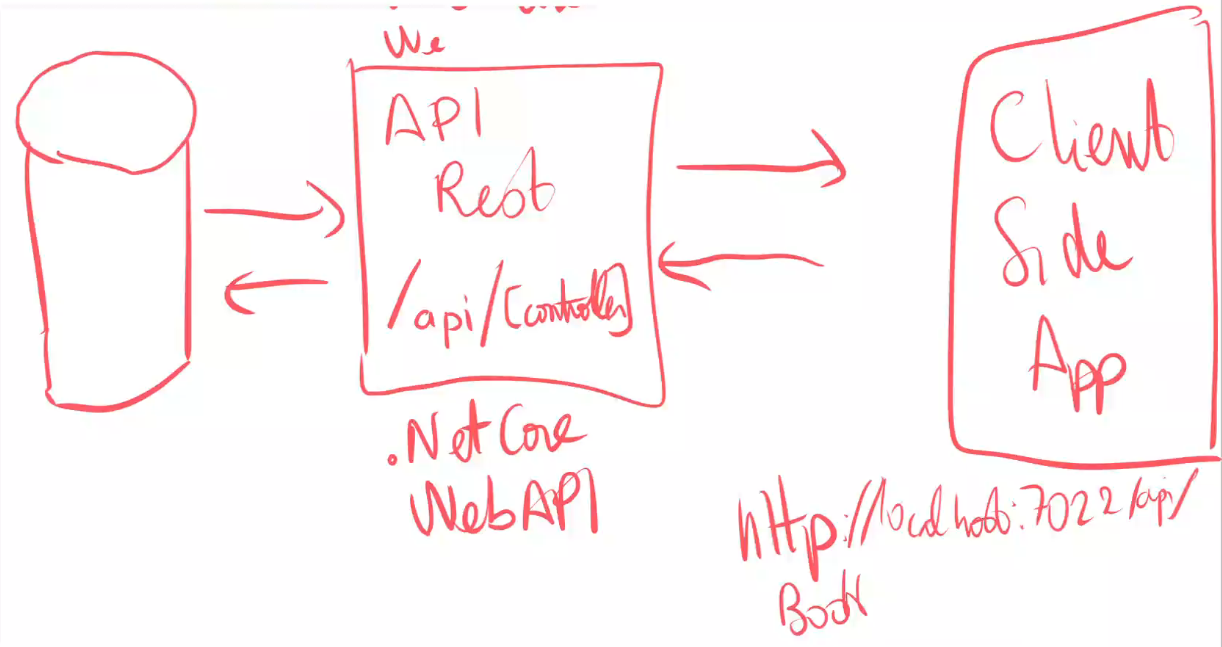 We
API
Rest
/api/[controller]
.Net Core
WebAPI
Client
Side
App
http://localhost:7022/api/
Book